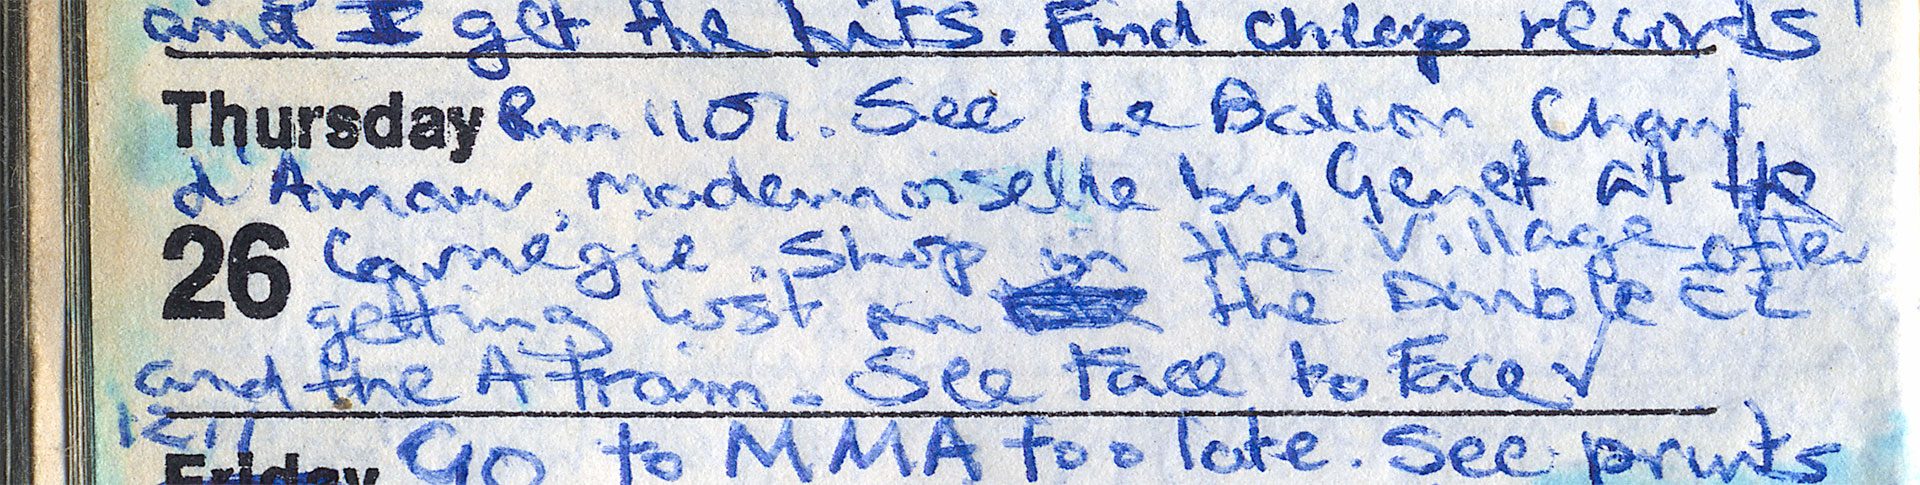 and I get the hits. Find cheap records
Thursday Rm 1101. See Le Balcon Chant
d'Amour, Mademoiselle by Genet at the
26 Carnegie. Shop in the Village after
getting lost on the Double EE
and the A train. See Face to Face
1277
Friday Go to MMA too late. See prints